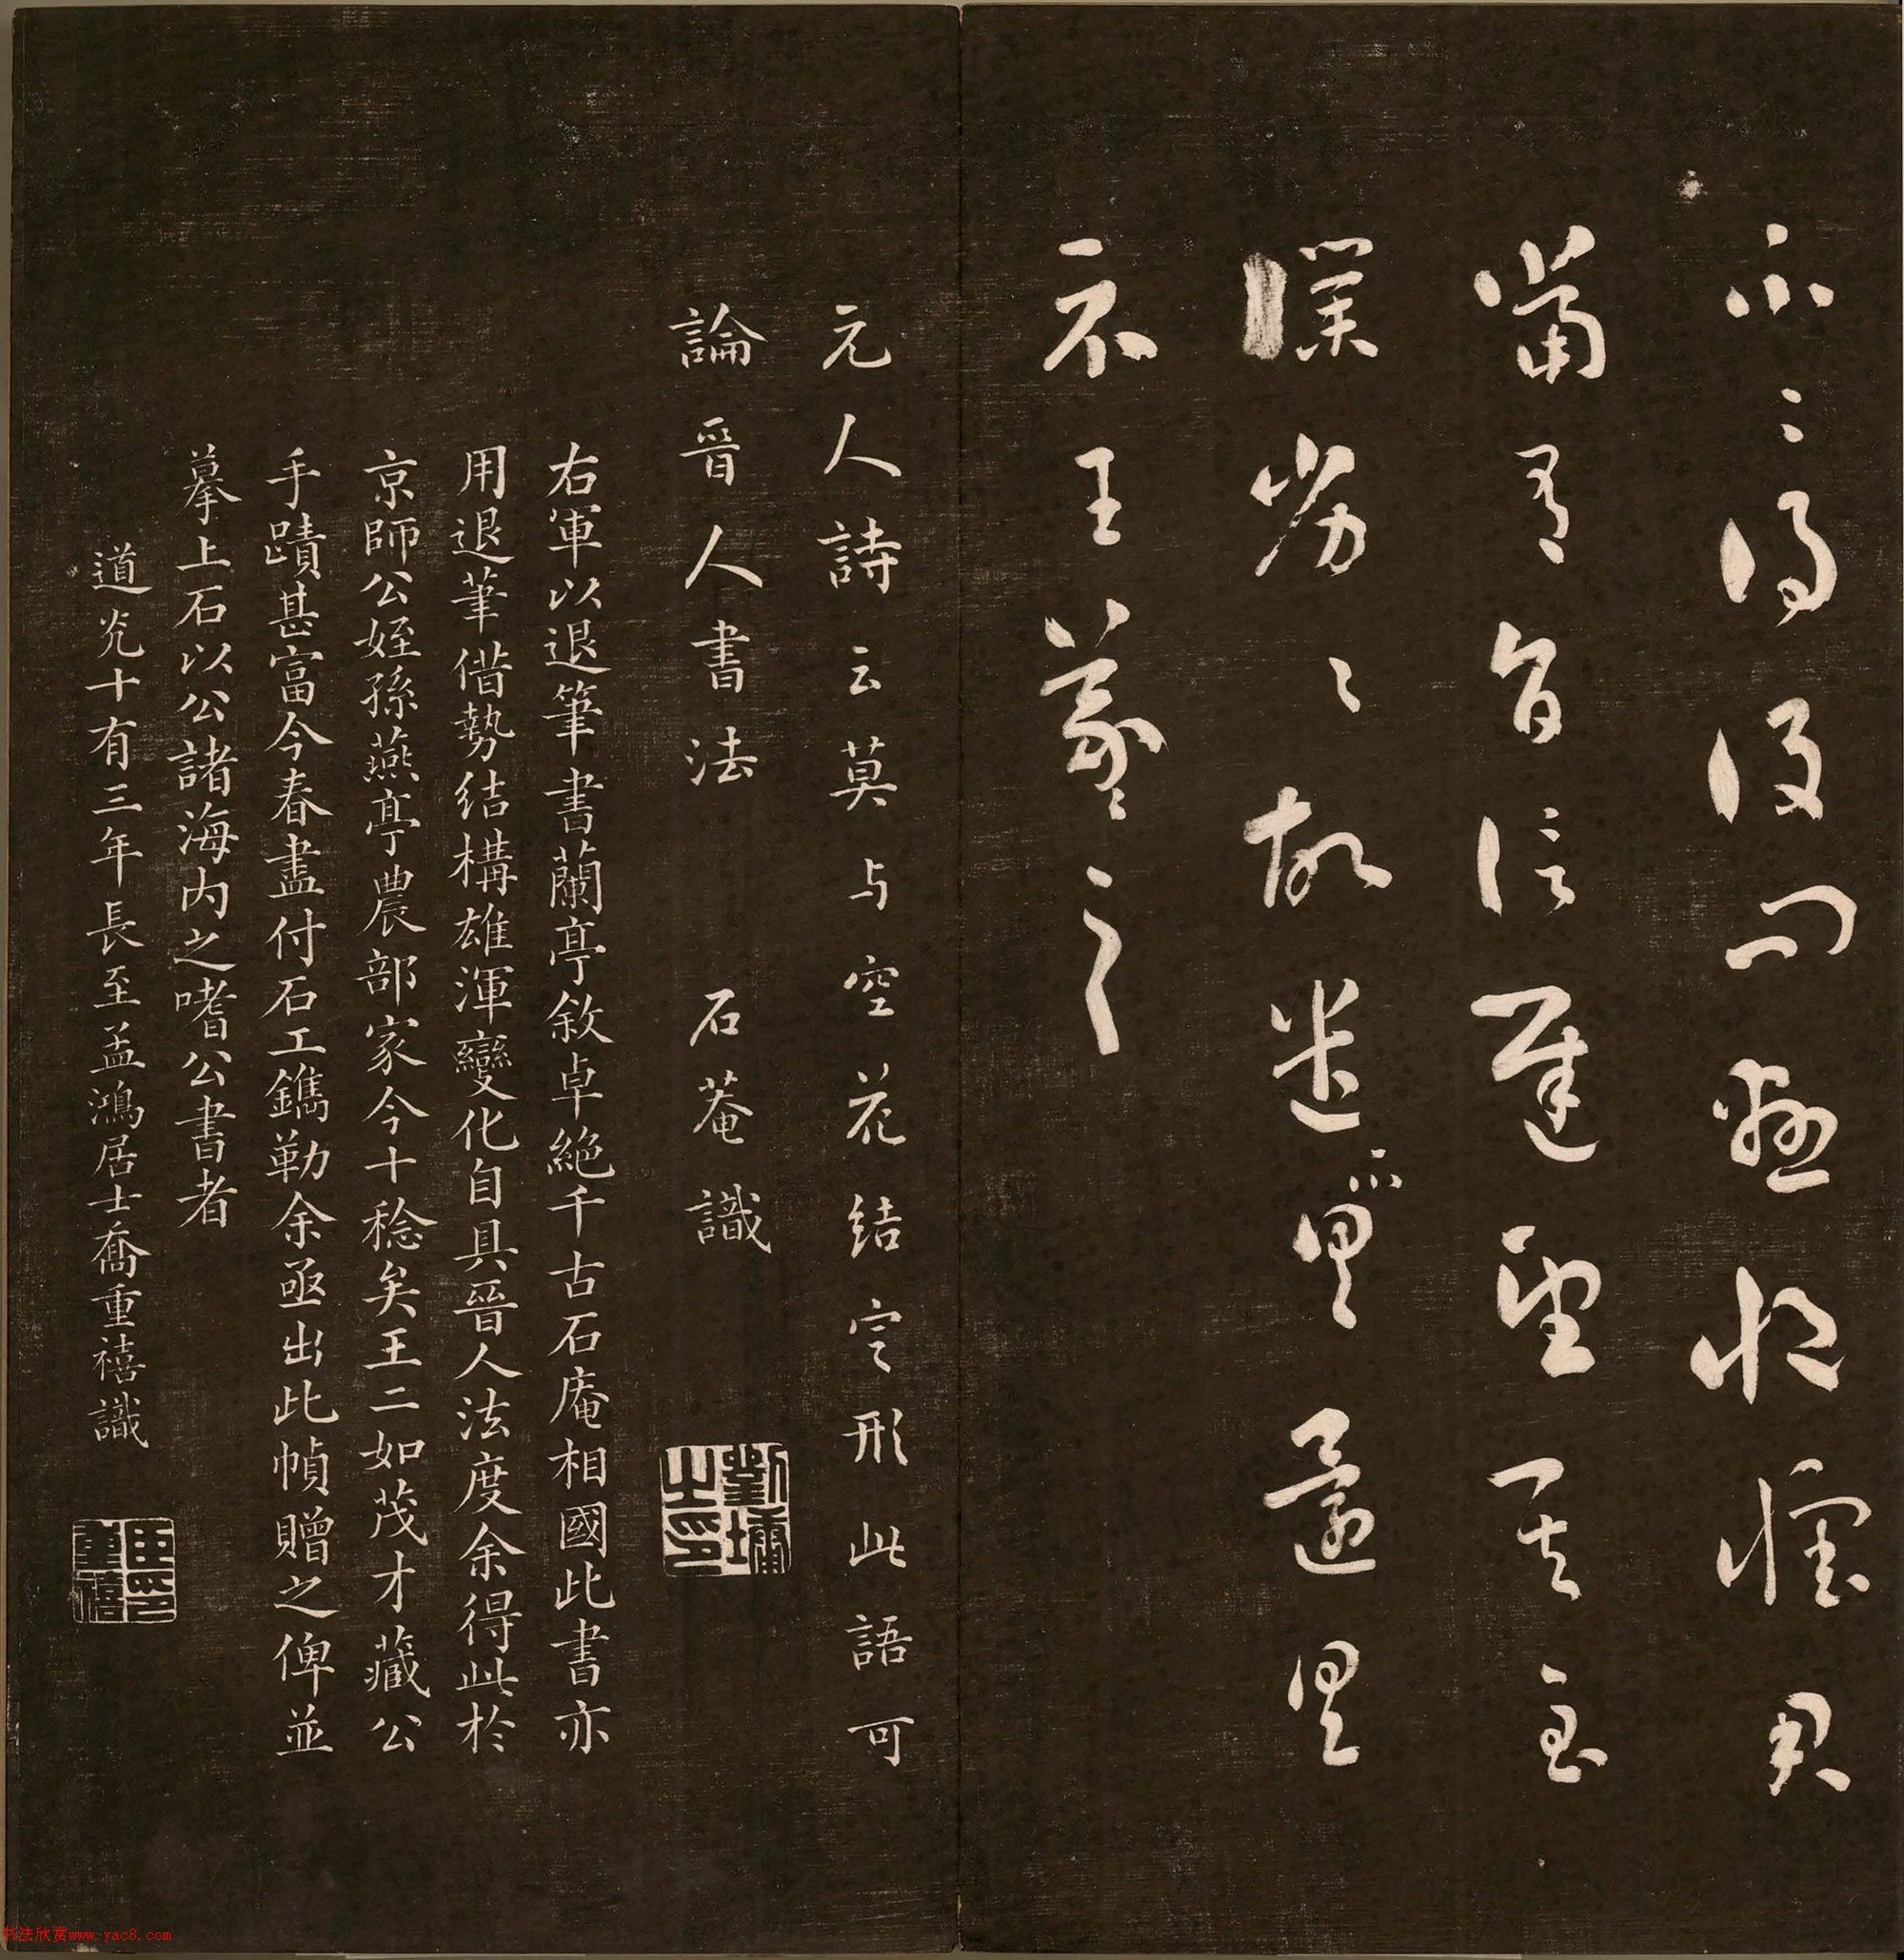 不〻得後問懸情君
當有旨信遲望其至
僕劣〻故遣不具還具
示王羲之
元人詩云莫与空花結定形此語可
論晉人書法 石菴識
劉墉之印
右軍以退筆書蘭亭敘卓絕千古石庵相國此書亦
用退筆借勢結構雄渾變化自具晉人法度余得此於
京師公姪孫燕亭農部家今十稔矣王二如茂才藏公
手蹟甚富今春盡付石工鐫勒余亟出此幀贈之俾並
摹上石以公諸海內之嗜公書者
道光十有三年長至孟鴻居士喬重禧識
臣印重禧
书法欣赏www.yac8.com